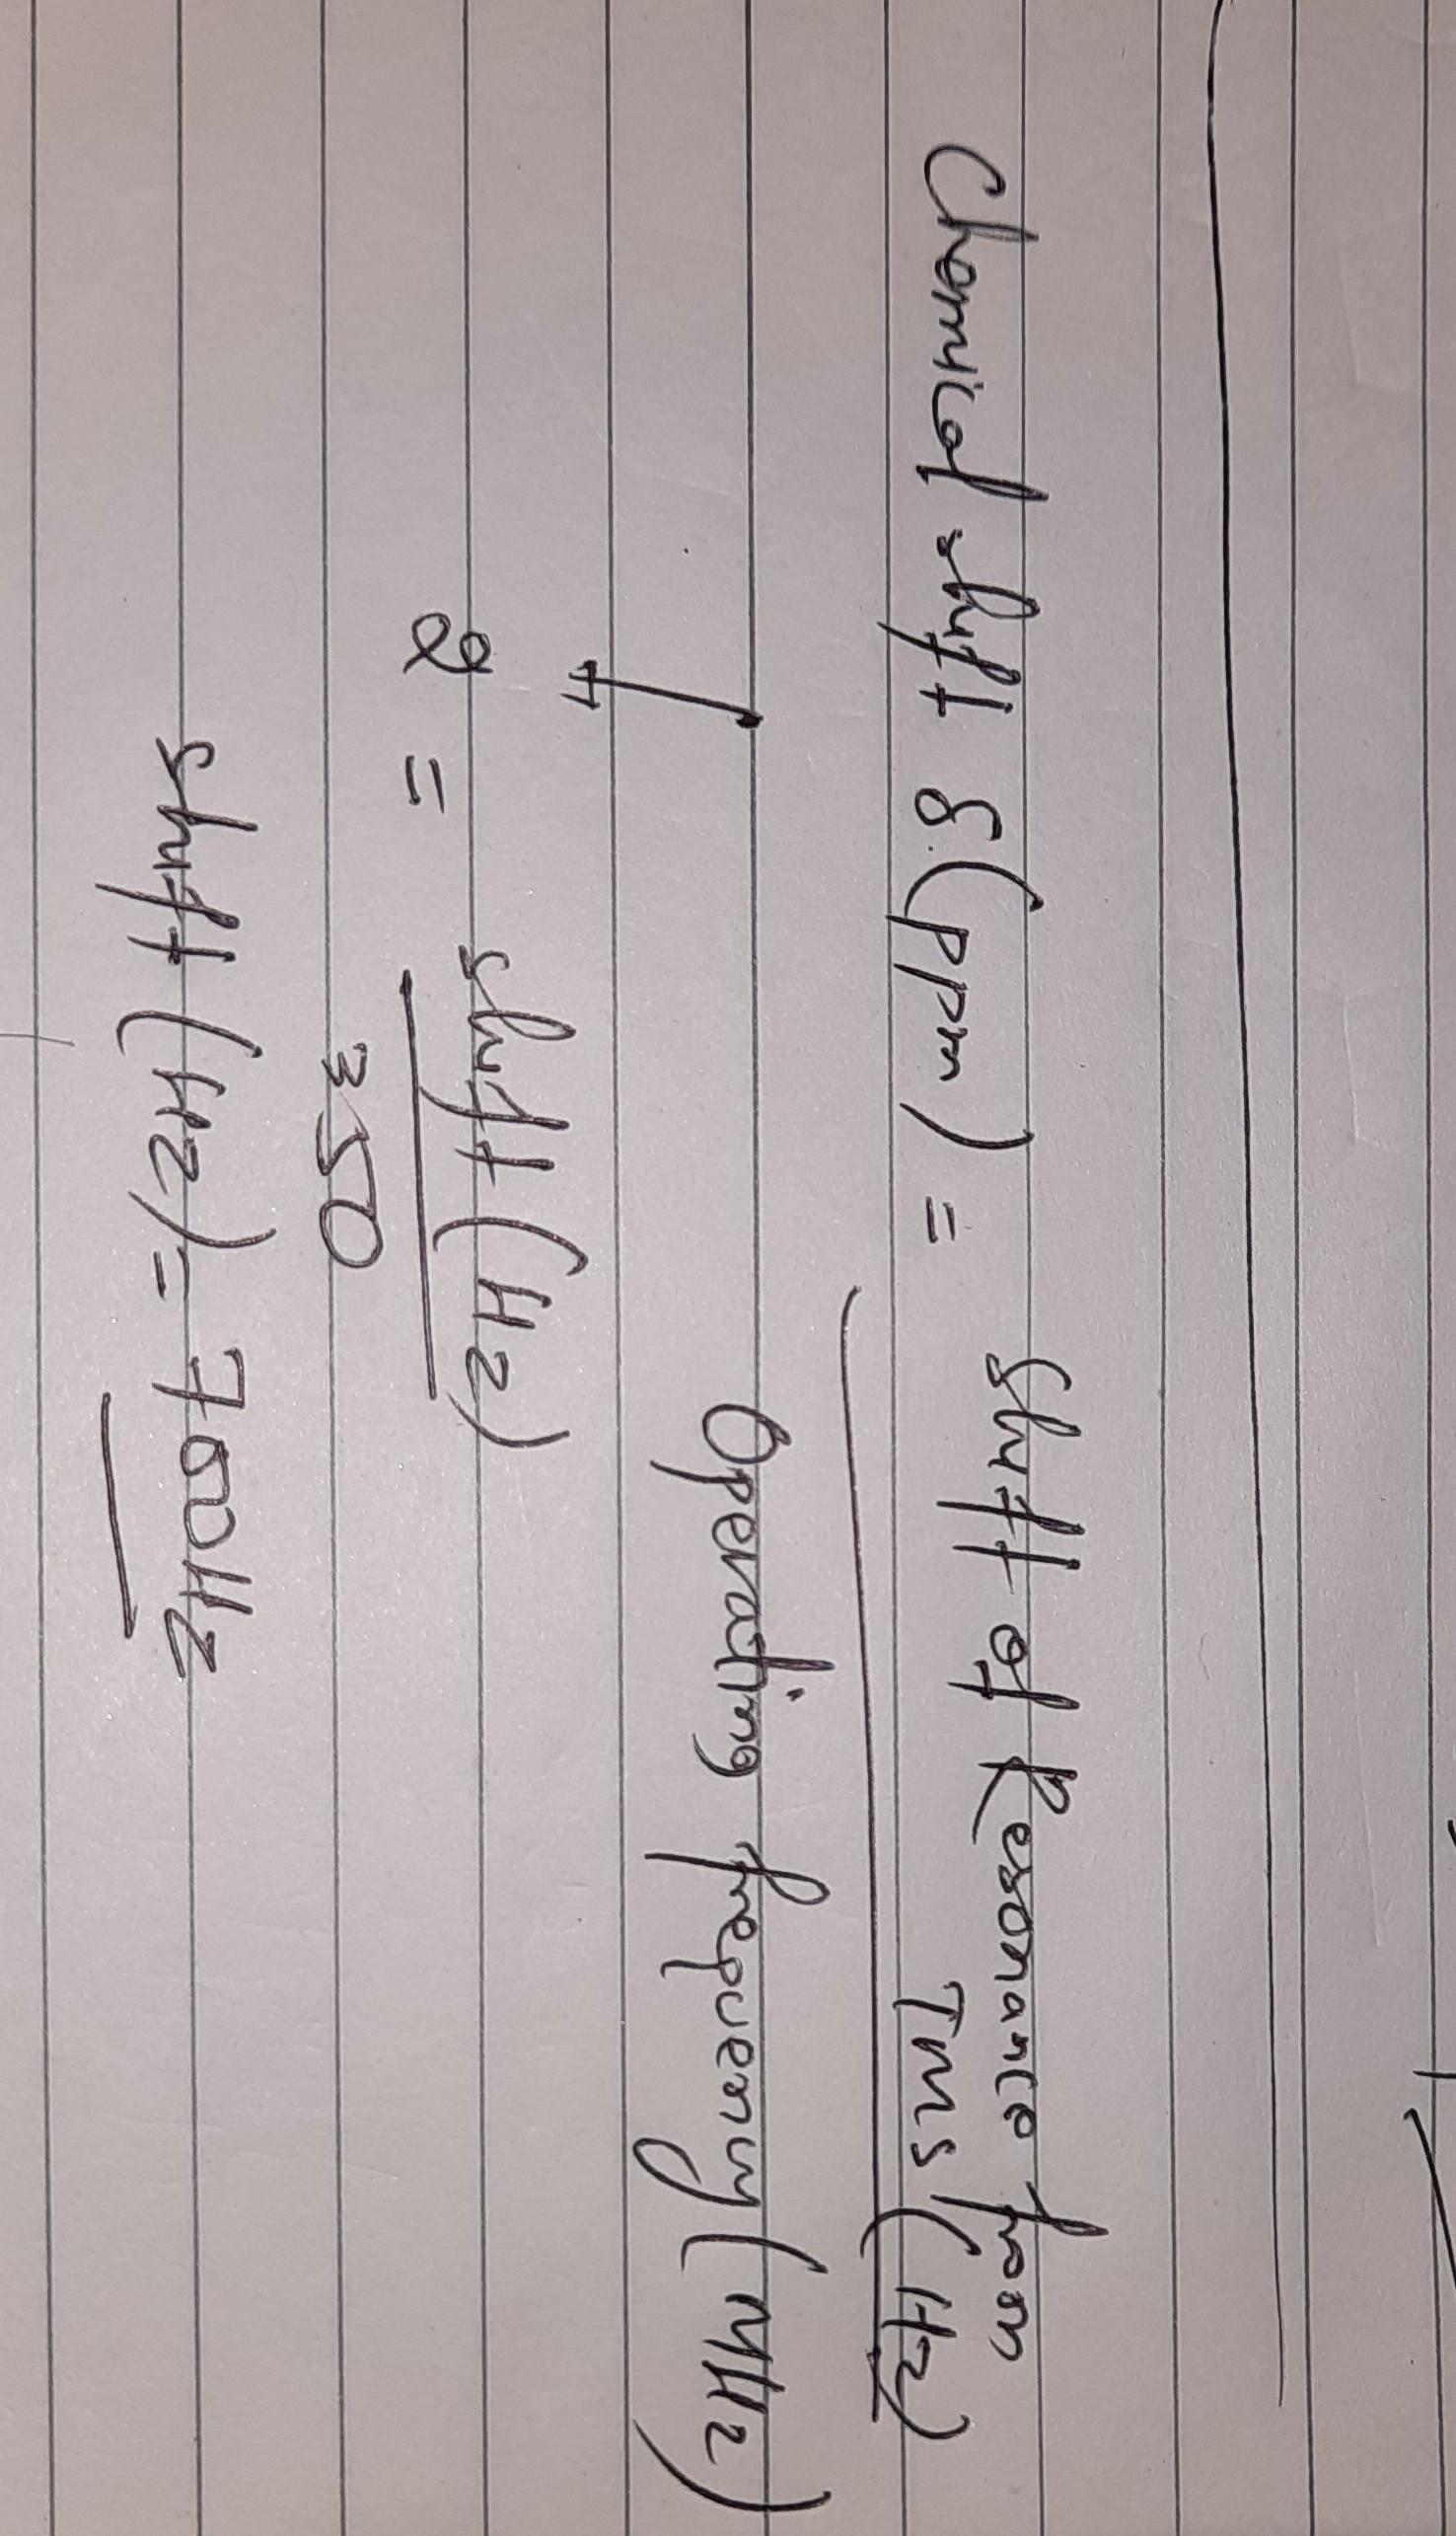 Chemical shift δ (ppm) = Shift of Resonance from
TMS (Hz)
Operating frequency (MHz)
2 = shift (Hz)
350
shift (Hz) = 700Hz